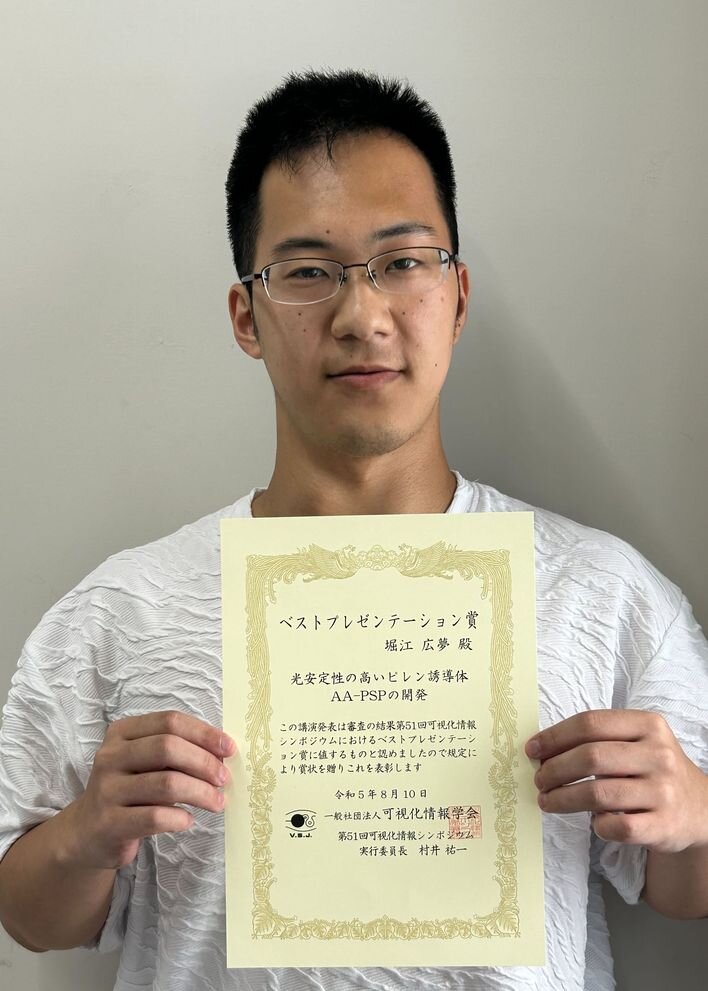 ベストプレゼンテーション賞
堀江 広夢 殿
光安定性の高いピレン誘導体
AA-PSPの開発
この講演発表は審査の結果第51回可視化情報
シンポジウムにおけるベストプレゼンテーシ
ョン賞に値するものと認めましたので規定に
より賞状を贈りこれを表彰します
令和5年8月10日
一般社団法人可視化情報学会
V.S.J.
第51回可視化情報シンポジウム
実行委員長 村井 祐一